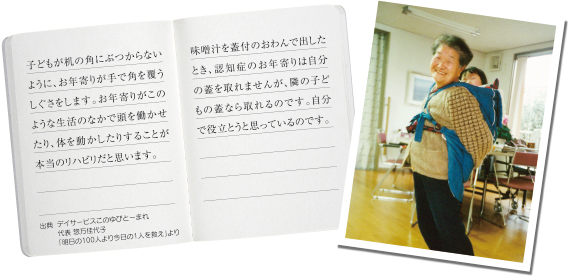 子どもが机の角にぶつからない
ように、お年寄りが手で角を覆う
しぐさをします。お年寄りがこの
ような生活のなかで頭を働かせ
たり、体を動かしたりすることが
本当のリハビリだと思います。
出典 デイサービスこのゆびとーまれ
代表 惣万佳代子
「明日の100人より今日の1人を救え」より
味噌汁を蓋付のおわんで出した
とき、認知症のお年寄りは自分
の蓋を取れませんが、隣の子ど
もの蓋なら取れるのです。自分
で役立とうと思っているのです。